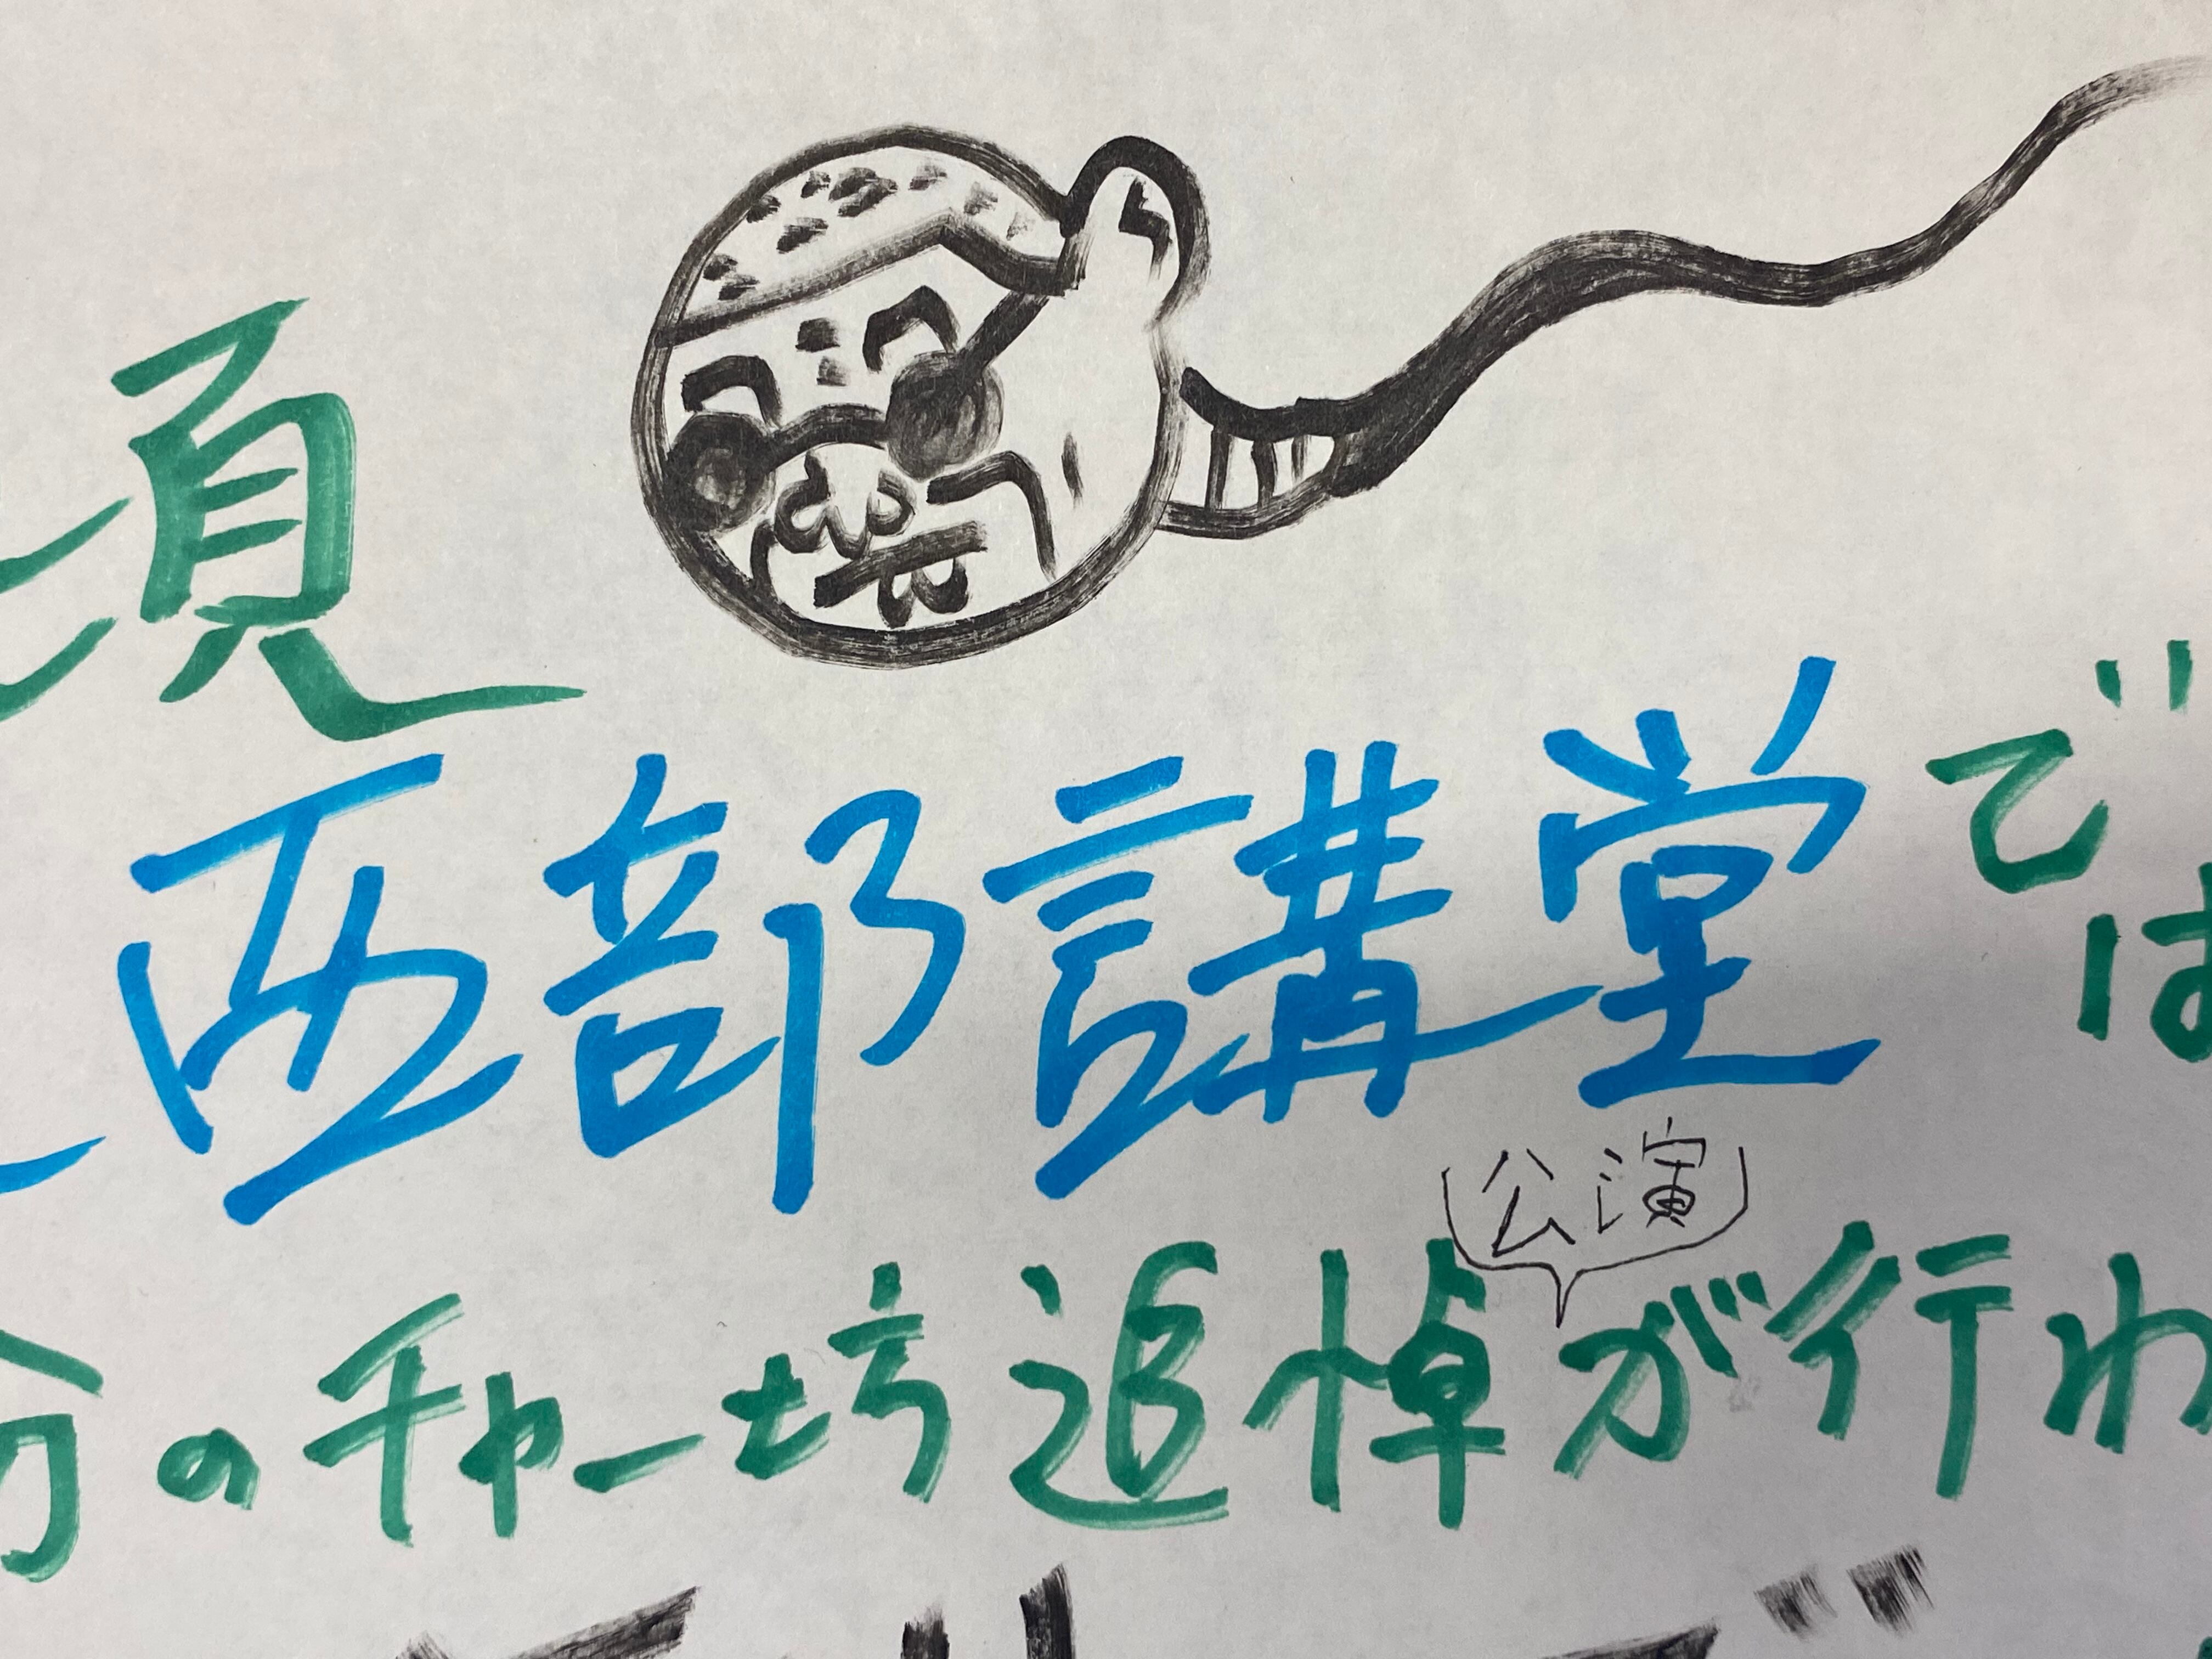 須
西部講堂では
公演
分のチャー坊追悼が行わ